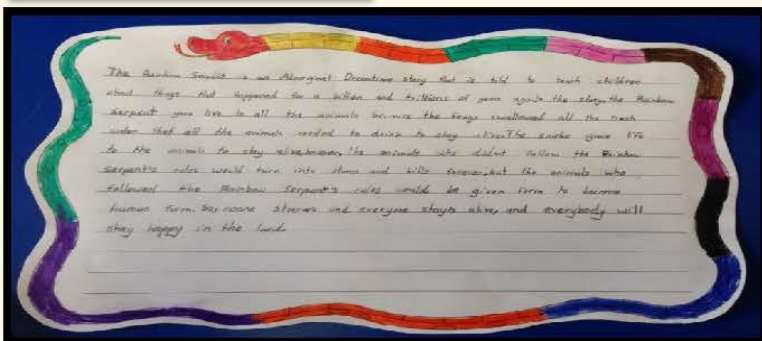 The Rainbow Serpent is an Aboriginal Dreamtime story that is told to teach children
about things that happened for a billion and trillions of years ago. In the story, the Rainbow
Serpent gave live to all the animals because the frogs swallowed all the fresh
water that all the animals needed to drink to stay alive. The snake gave life
to the animals to stay alive, however, the animals who didnt follow the Rainbow
Serpent's rules would turn into stones and hills forever, but the animals who
followed the Rainbow Serpent's rules would be given form to become
human form. So, noone starves and everyone stays alive, and everybody will
stay happy in the land.